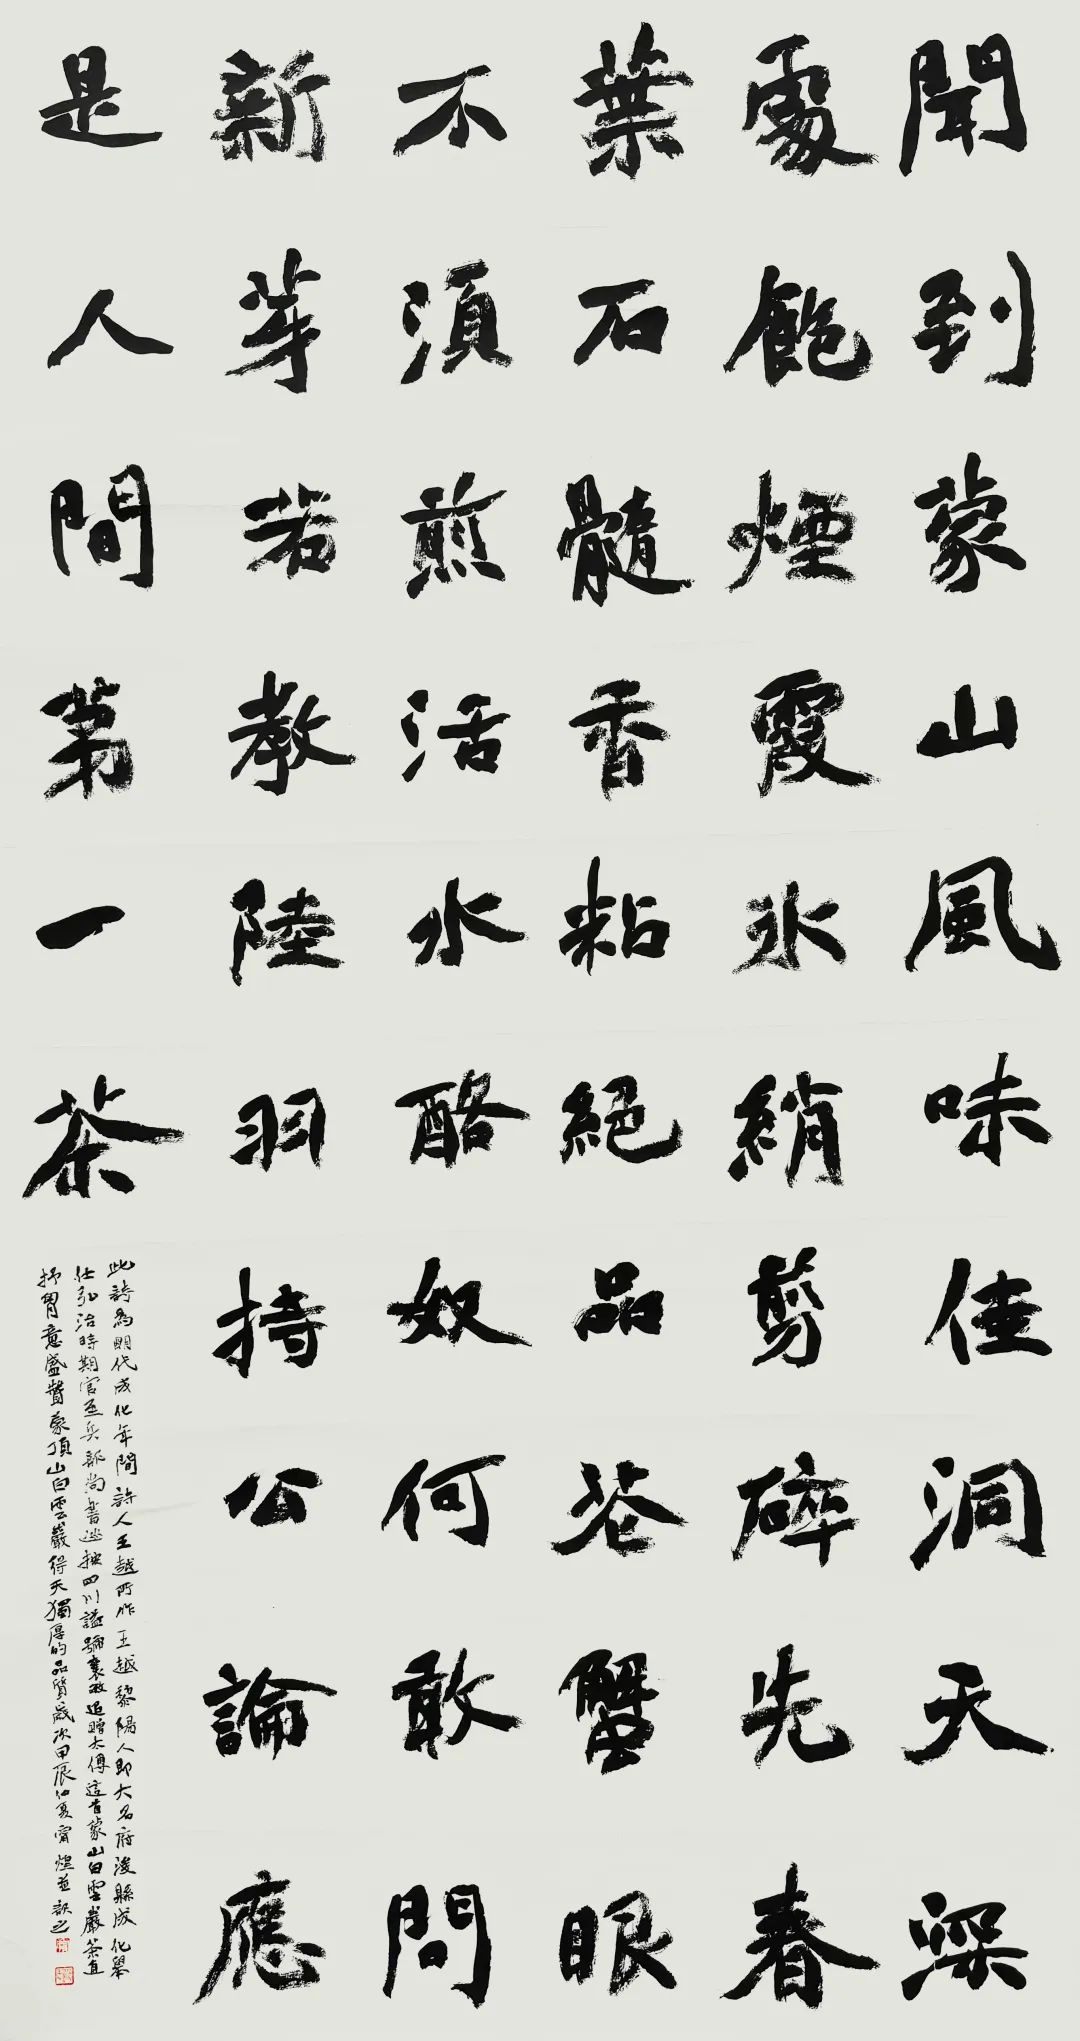 聞到蒙山風味佳洞天深
處飽煙霞氷綃剪碎先春
葉石髓香粘絕品花蟹眼
不須煎活水酪奴何敢問
新芽若教陸羽持公論應
是人間第一茶
此詩為明代成化年間詩人王越所作王越黎陽人即大名府浚縣成化舉
仕弘治時期官至兵部尚書巡撫四川謚號襄敏追贈太傅這首蒙山白雲巖茶直
抒胷意盛贊蒙頂山白雲巖得天獨厚的品質歲次甲辰仲夏雷煌並記之